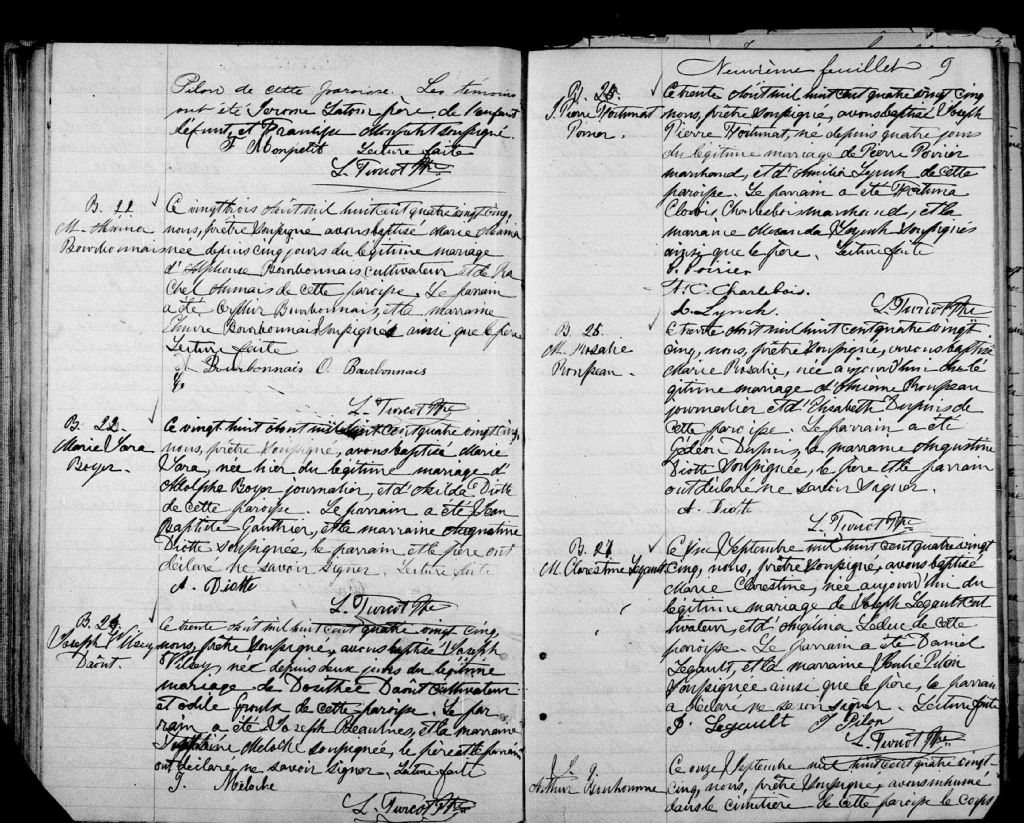 Pilon de cette paroisse. Les témoins
ont été Jerome Latour père de l'enfant
défunt, et soussigné
F. Monpetit Lecture faite
L. Turcot Ptre
B. 21
M. Mama
Bourbonnais
Ce vingt trois Août mil huit cent quatre vingt cinq,
nous, prêtre soussigné avons baptisé Marie Mama
née depuis cinq jours du légitime mariage
d'Alphonse Bourbonnais cultivateur et de Ra
chel de cette paroisse. Le parrain
a été Bourbonnais, et la marraine
Bourbonnais soussignés ainsi que le père
Lecture faite
A Bourbonnais O. Bourbonnais
L. Turcot Ptre
B. 22
Marie Yara
Boyer
Ce vingt huit Août mil huit cent quatre vingt cinq,
nous, prêtre soussigné, avons baptisé Marie
Yara, née hier du légitime mariage d'
Adolphe Boyer journalier, et d'Exilda Diotte
de cette paroisse. Le parrain a été Jean
Baptiste Gauthier, et la marraine Augustine
Diotte soussignée, le parrain et le père ont
déclaré ne savoir signer. Lecture faite
A. Diotte
L. Turcot Ptre
Joseph
Daoût
Ce trente Août mil huit cent quatre vingt cinq,
nous, prêtre soussigné, avons baptisé Joseph
née depuis deux jours du légitime
mariage de Dosithée Daoût cultivateur
et Odile de cette paroisse. Le par
rain a été Joseph Beaulnes, et la marraine
Meloche soussignée, le père et le parrain
ont déclaré ne savoir signer. Lecture faite
Meloche
L. Turcot Ptre
Neuvième feuillet 9
B. 25
J. Pierre Fortunat
Poirier
Ce trente Août mil huit cent quatre vingt cinq
nous, prêtre soussigné, avons baptisé Joseph
Pierre Fortunat, né depuis quatre jours
du légitime mariage de Pierre Poirier
marchand, et d'Amilia Lynch de cette
paroisse. Le parrain a été Fortuna
Clovis Charlebois marchand, et la
marraine Lynch soussignés
ainsi que le père. Lecture faite
P. Poirier
F. C. Charlebois.
L. Lynch
L. Turcot Ptre
B. 26
M. Rosalie
Rouppeau
Ce trente Août mil huit cent quatre vingt
cinq, nous, prêtre soussigné, avons baptisé
Marie Rosalie, née aujourd'hui du lé
gitime mariage d'Antoine Rouppeau
journalier et d'Elisabeth Dupuis de
cette paroisse. Le parrain a été
Gédéon Dupuis, la marraine Augustine
Diotte soussignée, le père et le parrain
ont déclaré ne savoir signer.
A. Diotte
L. Turcot Ptre
B. 27
M. Clorestine Legault
Ce Septembre mil huit cent quatre vingt
cinq, nous, prêtre soussigné, avons baptisé
Marie Clorestine, née aujourd'hui du
légitime mariage de Joseph Legault cul
tivateur, et d'Angélina Leduc de cette
paroisse. Le parrain a été Daniel
Legault, et la marraine Pilon
soussignée ainsi que le père, le parrain
a déclaré ne savoir signer. Lecture faite
Legault J Pilon
L. Turcot Ptre
Arthur Bonhomme
Ce onze Septembre mil huit cent quatre vingt-
cinq, nous, prêtre soussigné, avons inhumé
dans le cimetière de cette paroisse le corps